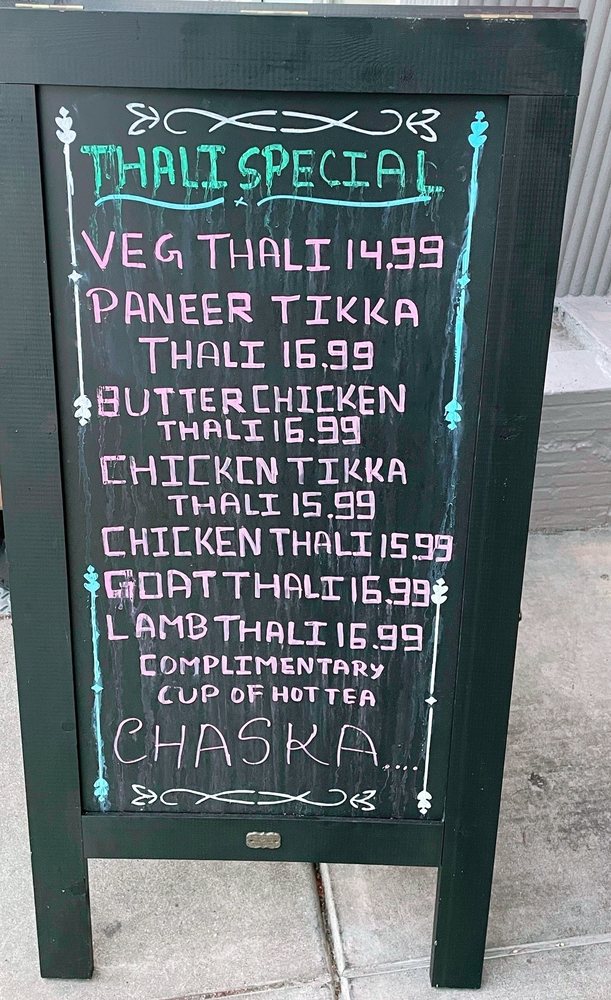 THALI SPECIAL
VEG THALI 14.99
PANEER TIKKA
THALI 16.99
BUTTER CHICKEN
THALI 16.99
CHICKEN TIKKA
THALI 15.99
CHICKEN THALI 15.99
GOAT THALI 16.99
LAMB THALI 16.99
COMPLIMENTARY
CUP OF HOT TEA
CHASKA....